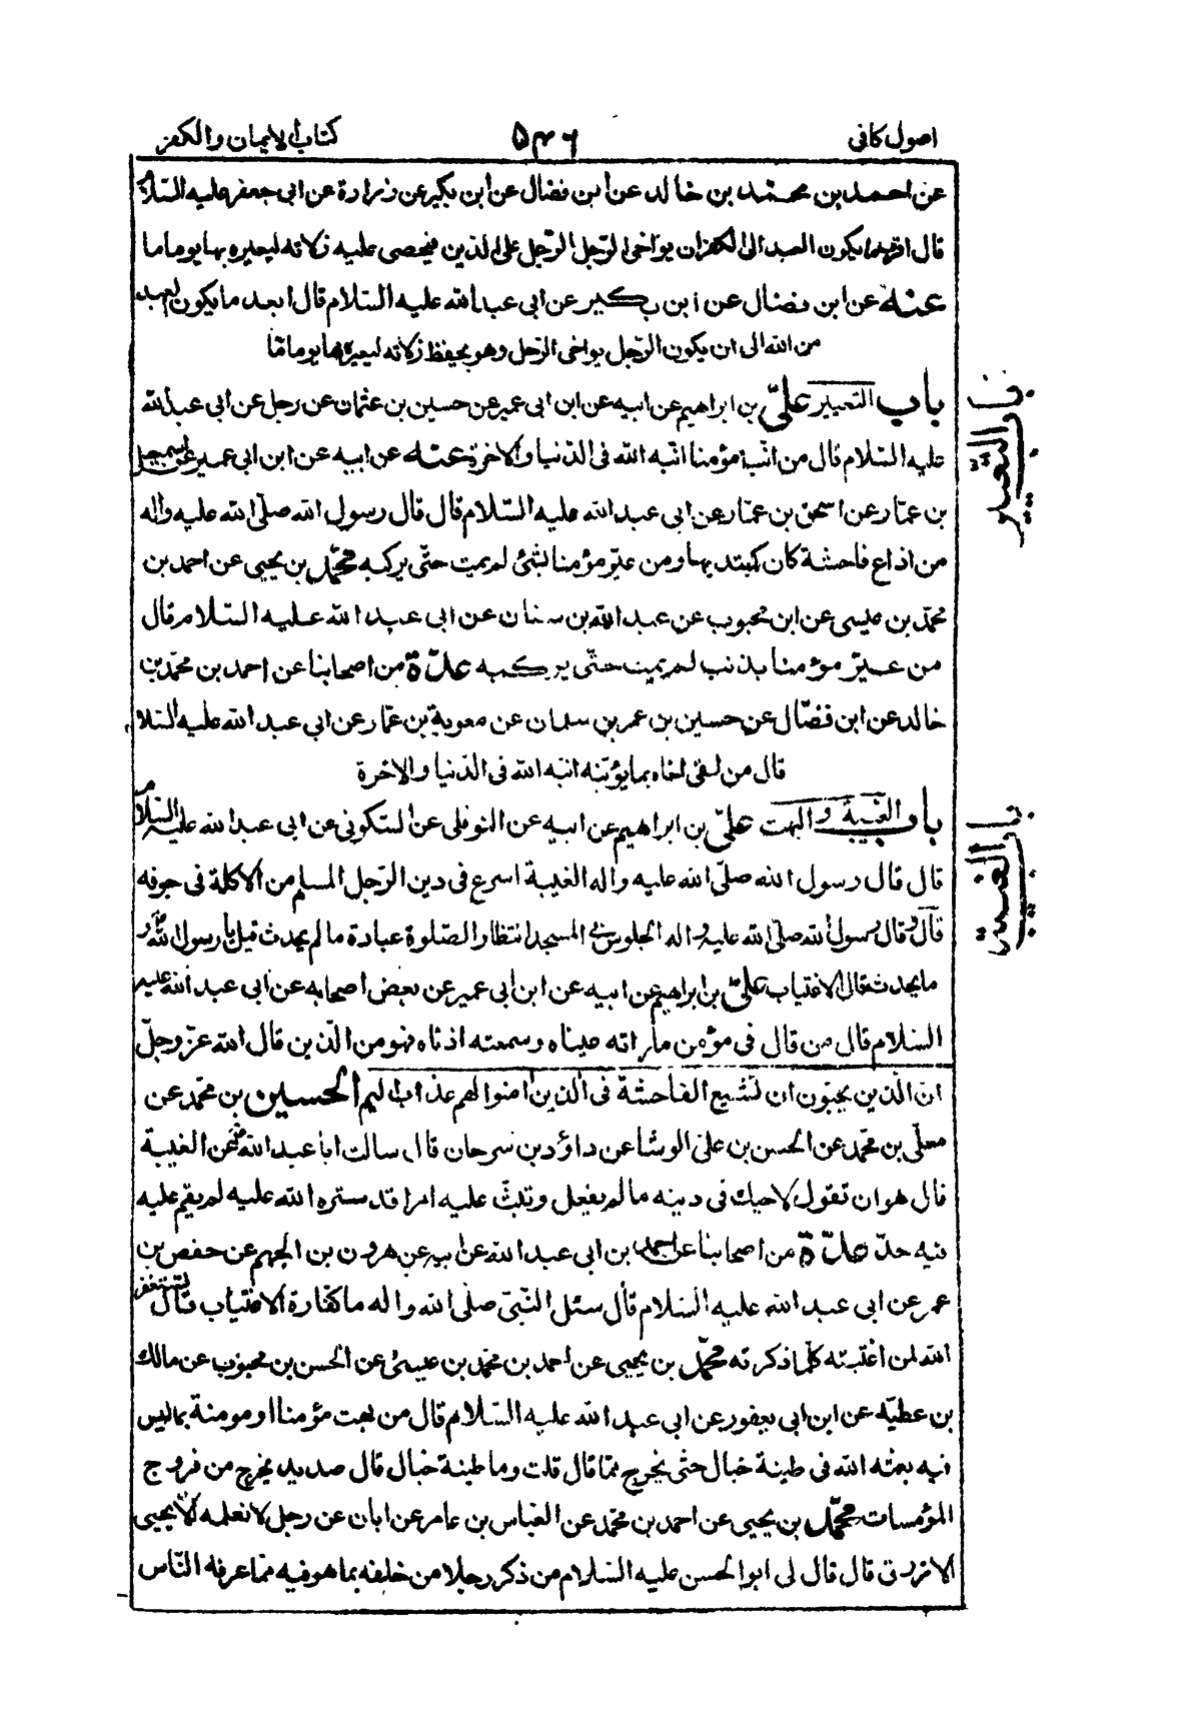 اصول كافى
۵۴۶
كتاب الايمان والكفر
عن احمد بن محمد بن خالد عن ابن فضال عن ابن بكير عن زرارة عن ابى جعفر عليه السلام
قال اقرب ما يكون العبد الى الكفر ان يواخى الرّجل الرّجل على الدين فيحصى عليه زلاته ليعيره بها يوما ما
عنه عن ابن فضال عن ابن بكير عن ابى عبد الله عليه السّلام قال ابعد ما يكون العبد
من الله الى ان يكون الرّجل يواخى الرّجل وهو يحفظ زلاته ليعيره بها يوما مّا
باب التعيير علىّ بن ابراهيم عن ابيه عن ابن ابى عمير عن حسين بن عثمان عن رجل عن ابى عبد الله
عليه السّلام قال من انّب مؤمنا انّبه الله فى الدّنيا والاخرة عنه عن ابيه عن ابن ابى عمير عن اسمعيل
بن عمّار عن اسحق بن عمّار عن ابى عبد الله عليه السّلام قال قال رسول الله صلّى الله عليه واله
من اذاع فاحشة كان كمبتدئها ومن عيّر مؤمنا بشئ لم يمت حتّى يركبه محمّد بن يحيى عن احمد بن
محمّد بن عيسى عن ابن محبوب عن عبد الله بن سنان عن ابى عبد الله عليه السّلام قال
من عيّر مؤمنا بذنب لم يمت حتّى يركبه عدّة من اصحابنا عن احمد بن محمّد بن
خالد عن ابن فضّال عن حسين بن عمر بن سلمان عن معوية بن عمّار عن ابى عبد الله عليه السّلا
قال من لقى اخاه بما يؤنّبه انّبه الله فى الدّنيا والاخرة
باب التّعيير
باب الغيبة والبهت علىّ بن ابراهيم عن ابيه عن النوفلى عن السّكونى عن ابى عبد الله عليه السّلام
قال قال رسول الله صلّى الله عليه واله الغيبة اسرع فى دين الرّجل المسلم من الاكلة فى جوفه
قال وقال رسول الله صلّى الله عليه واله الجلوس فى المسجد انتظار الصّلوة عبادة ما لم يحدث قيل يا رسول الله و
ما يحدث قال الاغتياب علىّ بن ابراهيم عن ابيه عن ابن ابى عمير عن بعض اصحابه عن ابى عبد الله عليه
السّلام قال من قال فى مؤمن ما راته عيناه وسمعته اذناه فهو من الّذين قال الله عزّ وجلّ
انّ الّذين يحبّون ان تشيع الفاحشة فى الذين امنوا لهم عذاب اليم الحسين بن محمّد عن
معلّى بن محمّد عن الحسن بن على الوشا عن داؤد بن سرحان قال سالت ابا عبد الله ع عن الغيبة
قال هو ان تقول لاخيك فى دينه ما لم يفعل وتبثّ عليه امرا قد ستره الله عليه لم يقم عليه
فيه حدّ عدّة من اصحابنا عن احمد بن ابى عبد الله عن ابيه عن هرون بن الجهم عن حفص بن
عمر عن ابى عبد الله عليه السّلام قال سئل النّبىّ صلّى الله واله ما كفارة الاغتياب قال تستغفر
الله لمن اغتبته كلّما ذكرته محمّد بن يحيى عن احمد بن محمّد بن عيسى عن الحسن بن محبوب عن مالك
بن عطيّه عن ابن ابى يعفور عن ابى عبد الله عليه السّلام قال من بهت مؤمنا او مومنة بما ليس
فيه بعثه الله فى طينة خبال حتّى يخرج ممّا قال قلت وما طينة خبال قال صديد يخرج من فروج
المؤمسات محمّد بن يحيى عن احمد بن محمّد عن العباس بن عامر عن ابان عن رجل لا نعلمه الا يحيى
الازرق قال قال لى ابو الحسن عليه السّلام من ذكر رجلا من خلفه بما هو فيه ممّا عرفه النّاس
باب الغيبة